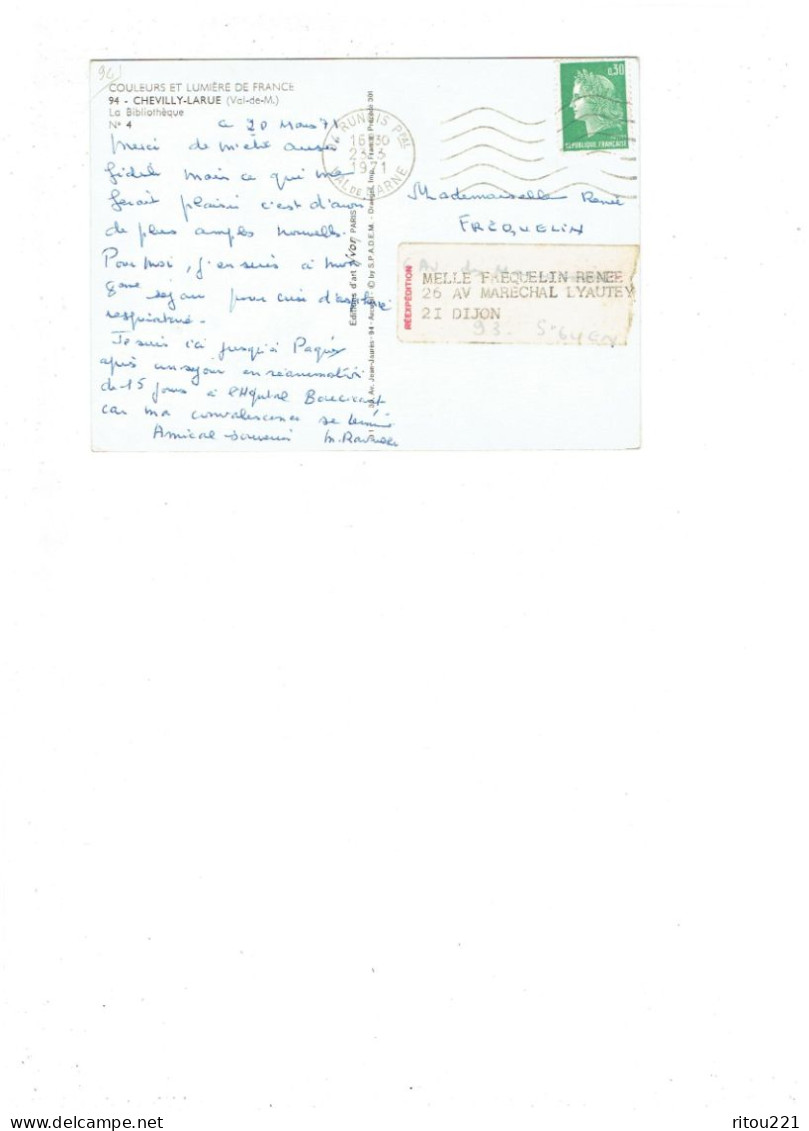 94
COULEURS ET LUMIÈRE DE FRANCE
94 - CHEVILLY-LARUE (Val-de-M.)
La Bibliothèque
N° 4
20 Mars 71
Merci de m'être aussi
fidèle mais ce qui me
ferait plaisir c'est d'avoir
de plus amples nouvelles.
Pour moi, j'en suis à mon
séjour pour crise
respiratoire.
Je suis ici jusqu'à Pâques
après un séjour en réanimation
de 15 jours à l'Hôpital Boucicaut
car ma convalescence se termine
Amical souvenir M.
RUNGIS Ppal
16-30
23-3
1971
VAL DE MARNE
Editions d'art Yvon PARIS
Av. Jean-Jaurès - 94 - Arcueil - © by S.P.A.D.E.M. - Draeger, Imp.
0,30
RÉPUBLIQUE FRANÇAISE
Mademoiselle Renée
FRÉQUELIN
RÉEXPÉDITION
MELLE FREQUELIN RENEE
26 AV MARECHAL LYAUTEY
2I DIJON
93 - St Ouen
ritou221